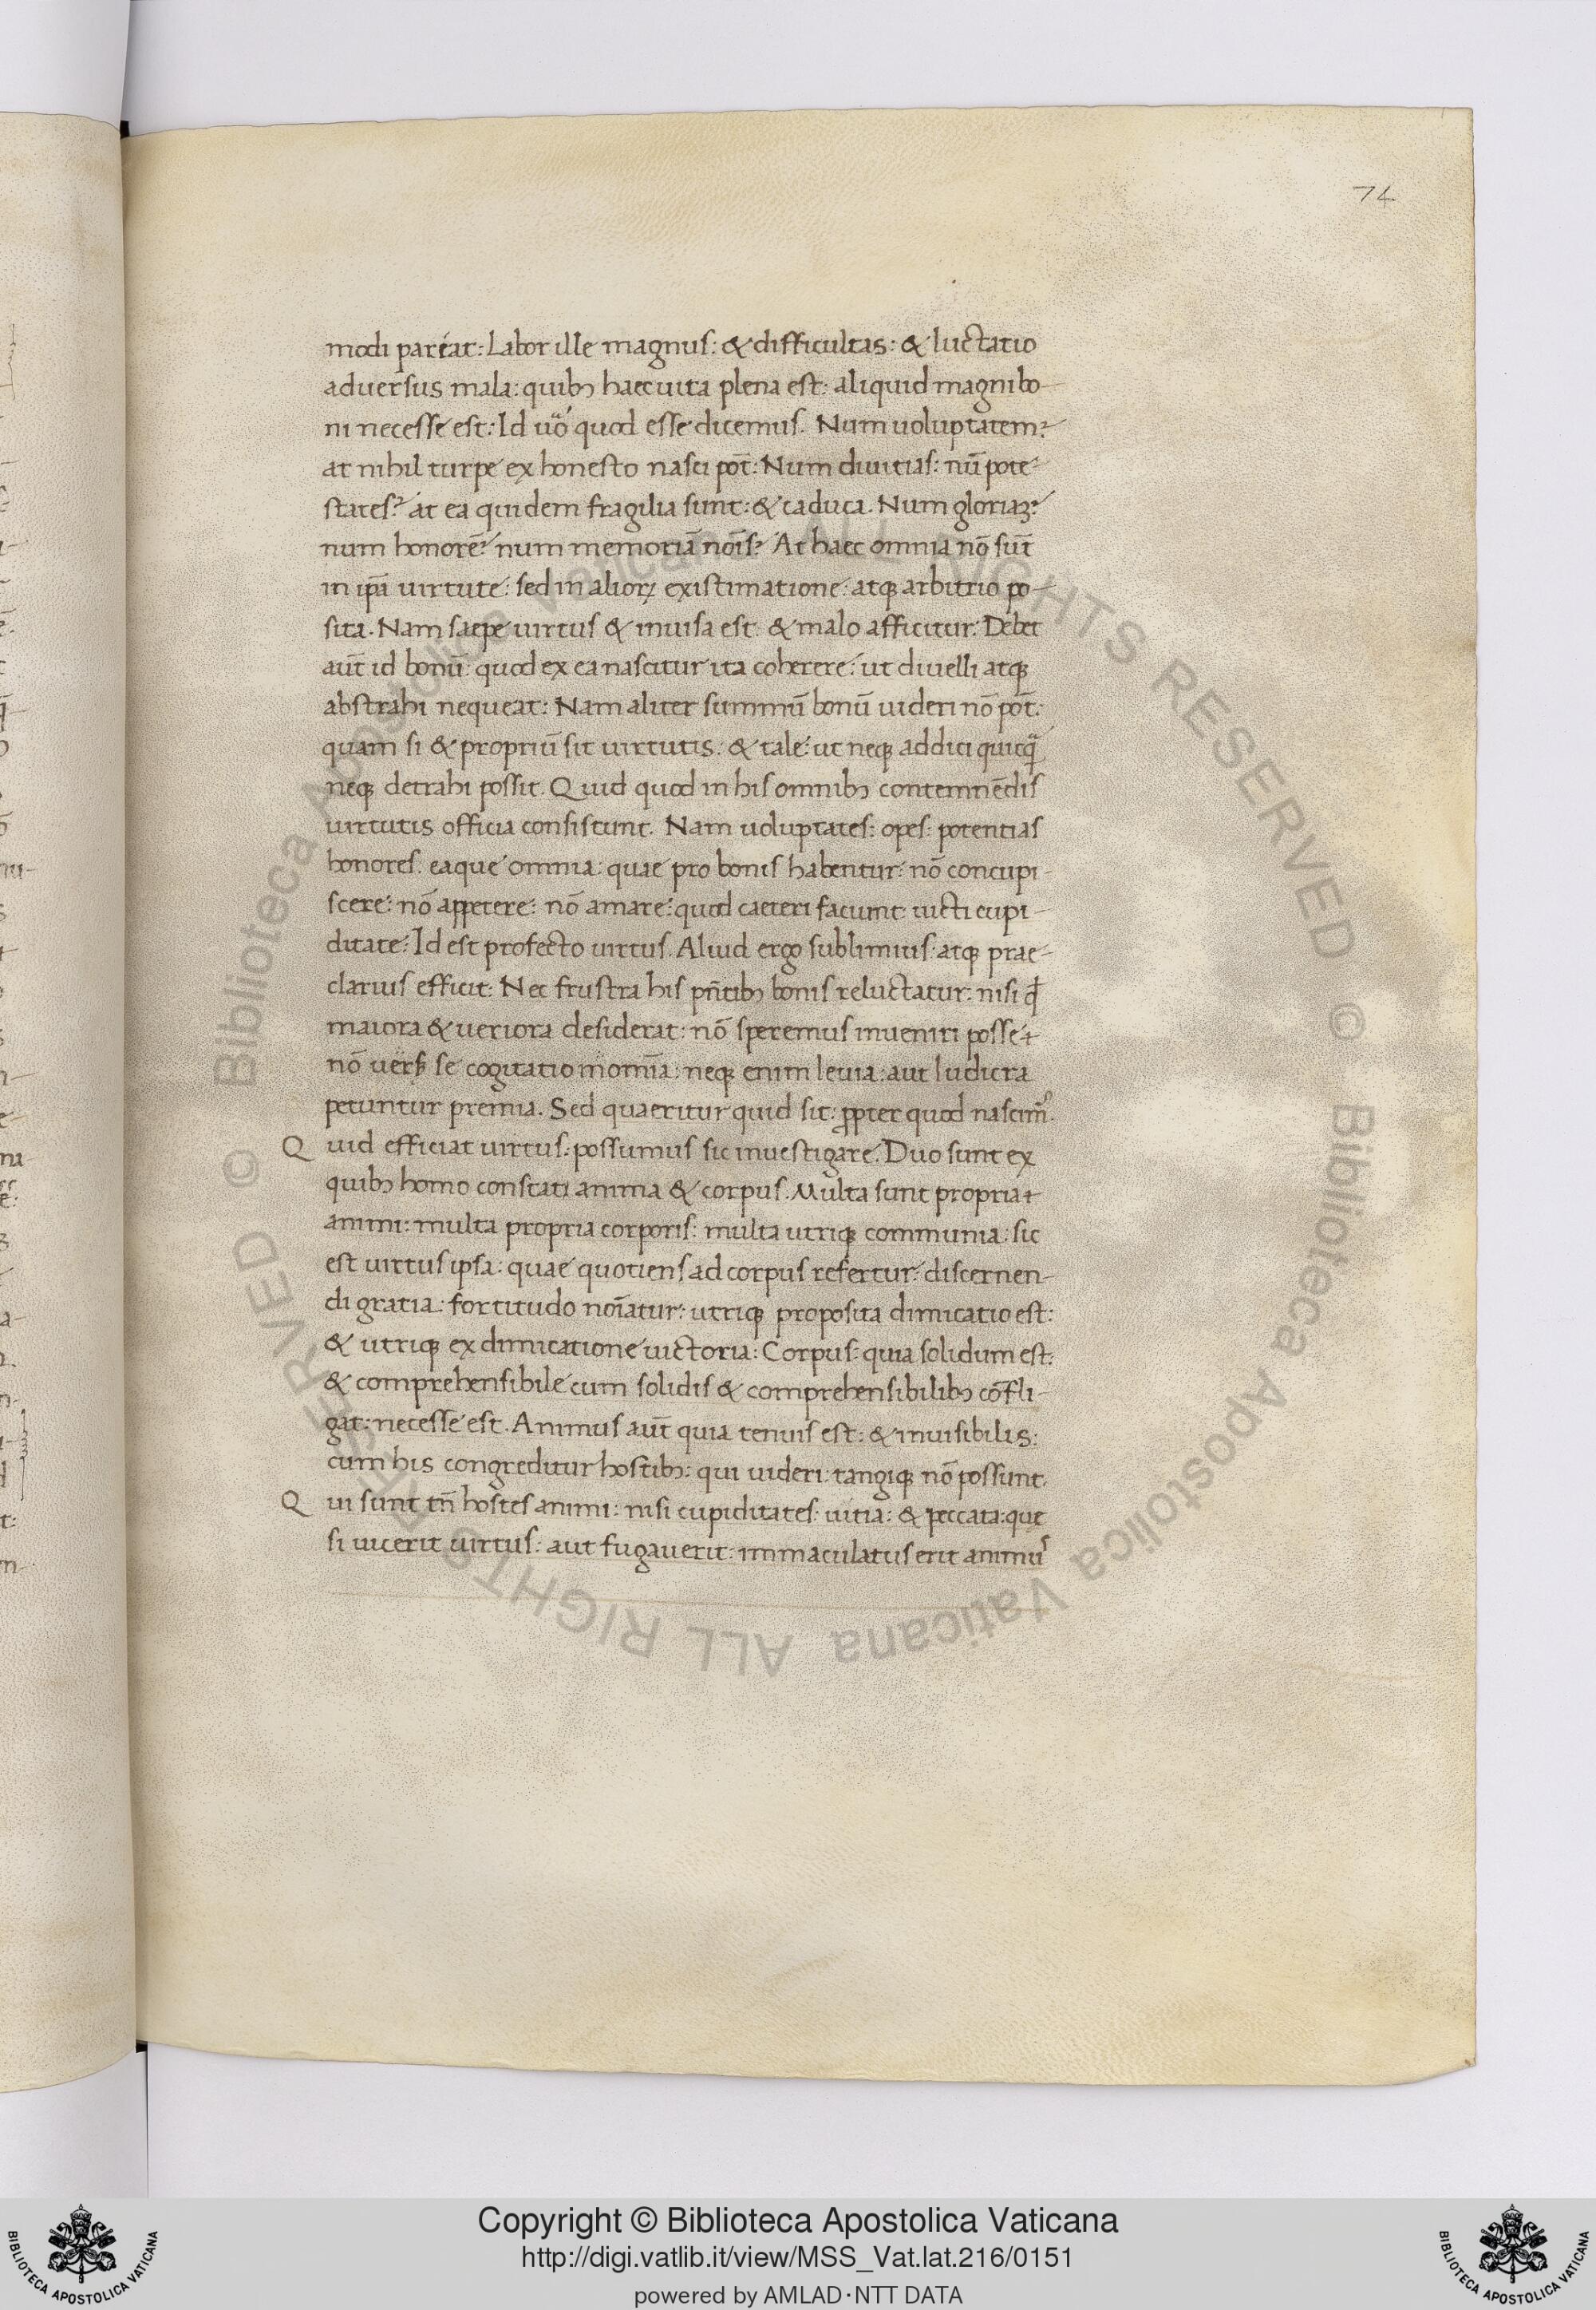 74
modi pareat: Labor ille magnus: & difficultas: & luctatio
aduersus mala: quibꝫ haec uita plena est: aliquid magni bo-
ni necesse est: Id uo̊ quod esse dicemus. Num uoluptatem?
at nihil turpe ex honesto nasci pot̄: Num diuitias: nū pote-
states? at ea quidem fragilia sunt: & caduca. Num gloriaꝫ?
num honorē? num memoriā nōis? At haec omnia nō sūt
in ip̄a uirtute: sed in alioꝝ existimatione: atqꝫ arbitrio po-
sita. Nam saepe uirtus & inuisa est: & malo afficitur. Debet
aūt id bonū: quod ex ea nascitur ita coherere: ut diuelli atqꝫ
abstrahi nequeat: Nam aliter summū bonū uideri nō pot̄:
quam si & propriū sit uirtutis: & tale: ut neqꝫ addici quicq̄
neqꝫ detrahi possit. Quid quod in his omnibꝫ contemnēdis
uirtutis officia consistunt. Nam uoluptates: opes: potentias
honores: eaque omnia: quae pro bonis habentur: nō concupi-
scere: nō appetere: nō amare: quod caeteri faciunt uicti cupi-
ditate: Id est profecto uirtus. Aliud ergo sublimius atqꝫ prae-
clarius efficit: Nec frustra his pn̄tibꝫ bonis reluctatur: nisi qđ
maiora & ueriora desiderat: nō speremus inueniri posse
nō uersꝫ se cogitatio i omīa: neqꝫ enim leuia: aut ludicra
petuntur premia. Sed quaeritur quid sit: ꝓpter quod nascimꝰ.
Quid efficiat uirtus: possumus sic inuestigare. Duo sunt ex
quibꝫ homo constat: anima & corpus. Multa sunt propria
animi: multa propria corporis: multa utriqꝫ communia: sic
est uirtus ipsa: quae quotiens ad corpus refertur: discernen-
di gratia: fortitudo noīatur: utriqꝫ proposita dimicatio est:
& utriqꝫ ex dimicatione uictoria: Corpus: quia solidum est:
& comprehensibile cum solidis & comprehensibilibꝫ cōfli-
gat: necesse est. Animus aūt quia tenuis est: & inuisibilis:
cum his congreditur hostibꝫ: qui uideri: tangiqꝫ nō possunt.
Qui sunt tn̄ hostes animi: nisi cupiditates: uitia: & peccata: que
si uicerit uirtus: aut fugauerit: immaculatus erit animus
Copyright © Biblioteca Apostolica Vaticana
http://digi.vatlib.it/view/MSS_Vat.lat.216/0151
powered by AMLAD·NTT DATA